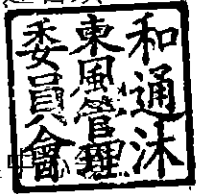 和通沐
東風管理
委員會